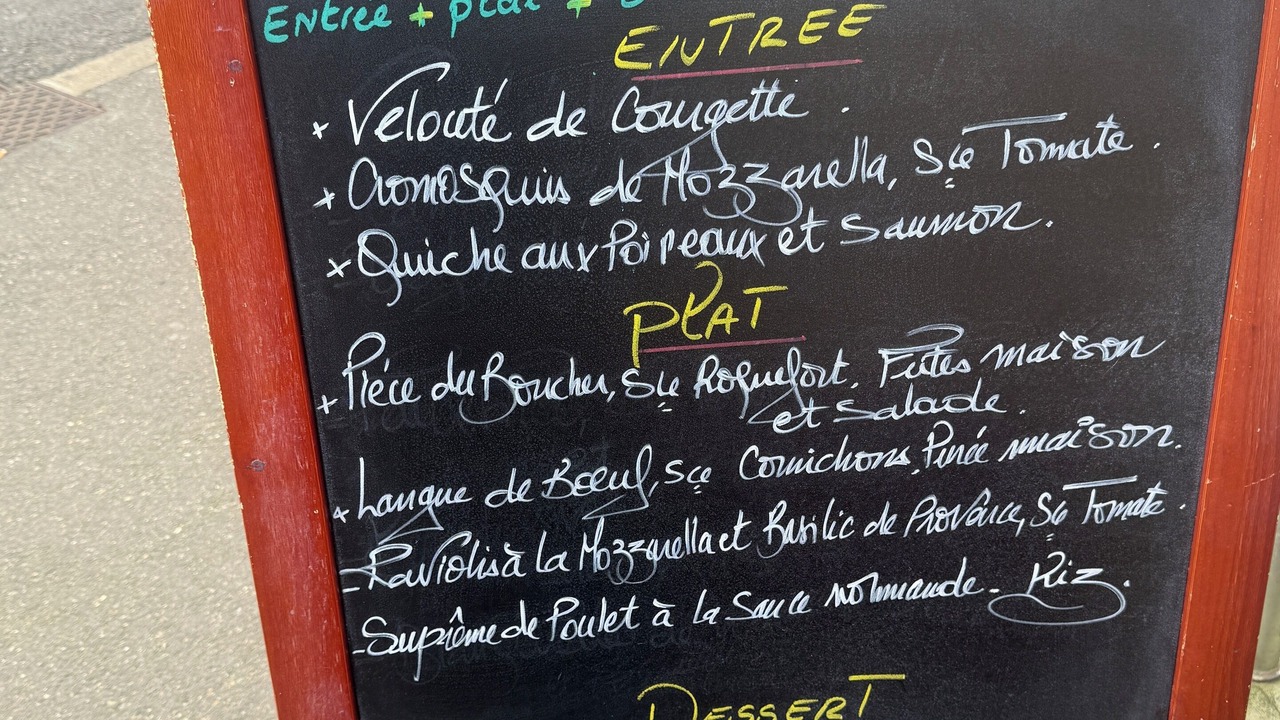 Entrée + plat +
ENTREE
+ Velouté de Courgette.
+ Cromosquis de Mozzarella, Sce Tomate.
x Quiche aux Poireaux et Saumon.
PLAT
+ Piéce du Boucher, Sce Roquefort. Frites maison
et Salade.
+ Langue de Bœuf, Sce Cornichons, Purée maison.
- Raviolis à la Mozzarella et Basilic de Provence, Sce Tomate.
- Suprême de Poulet à la Sauce normande - Riz.
DESSERT